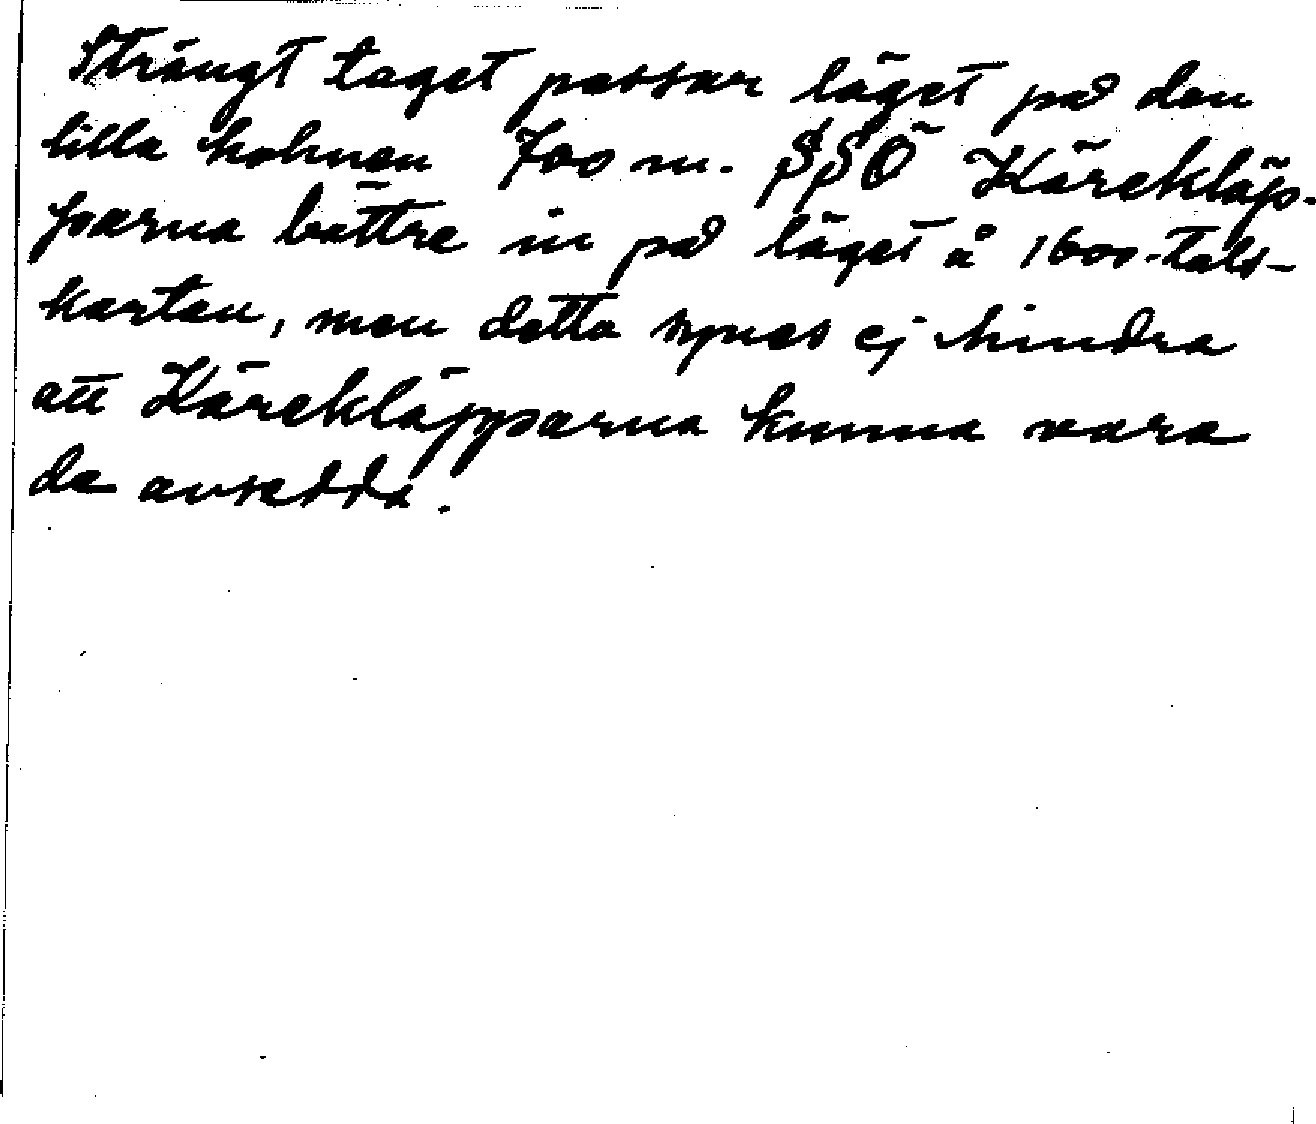 Strängt taget passar läget på den
lilla holmen 700 m. SSÖ Kärekläp-
parna bättre in på läget å 1600-tals-
kartan, men detta synes ej hindra
att Kärekläpparna kunna vara
de avsedda.